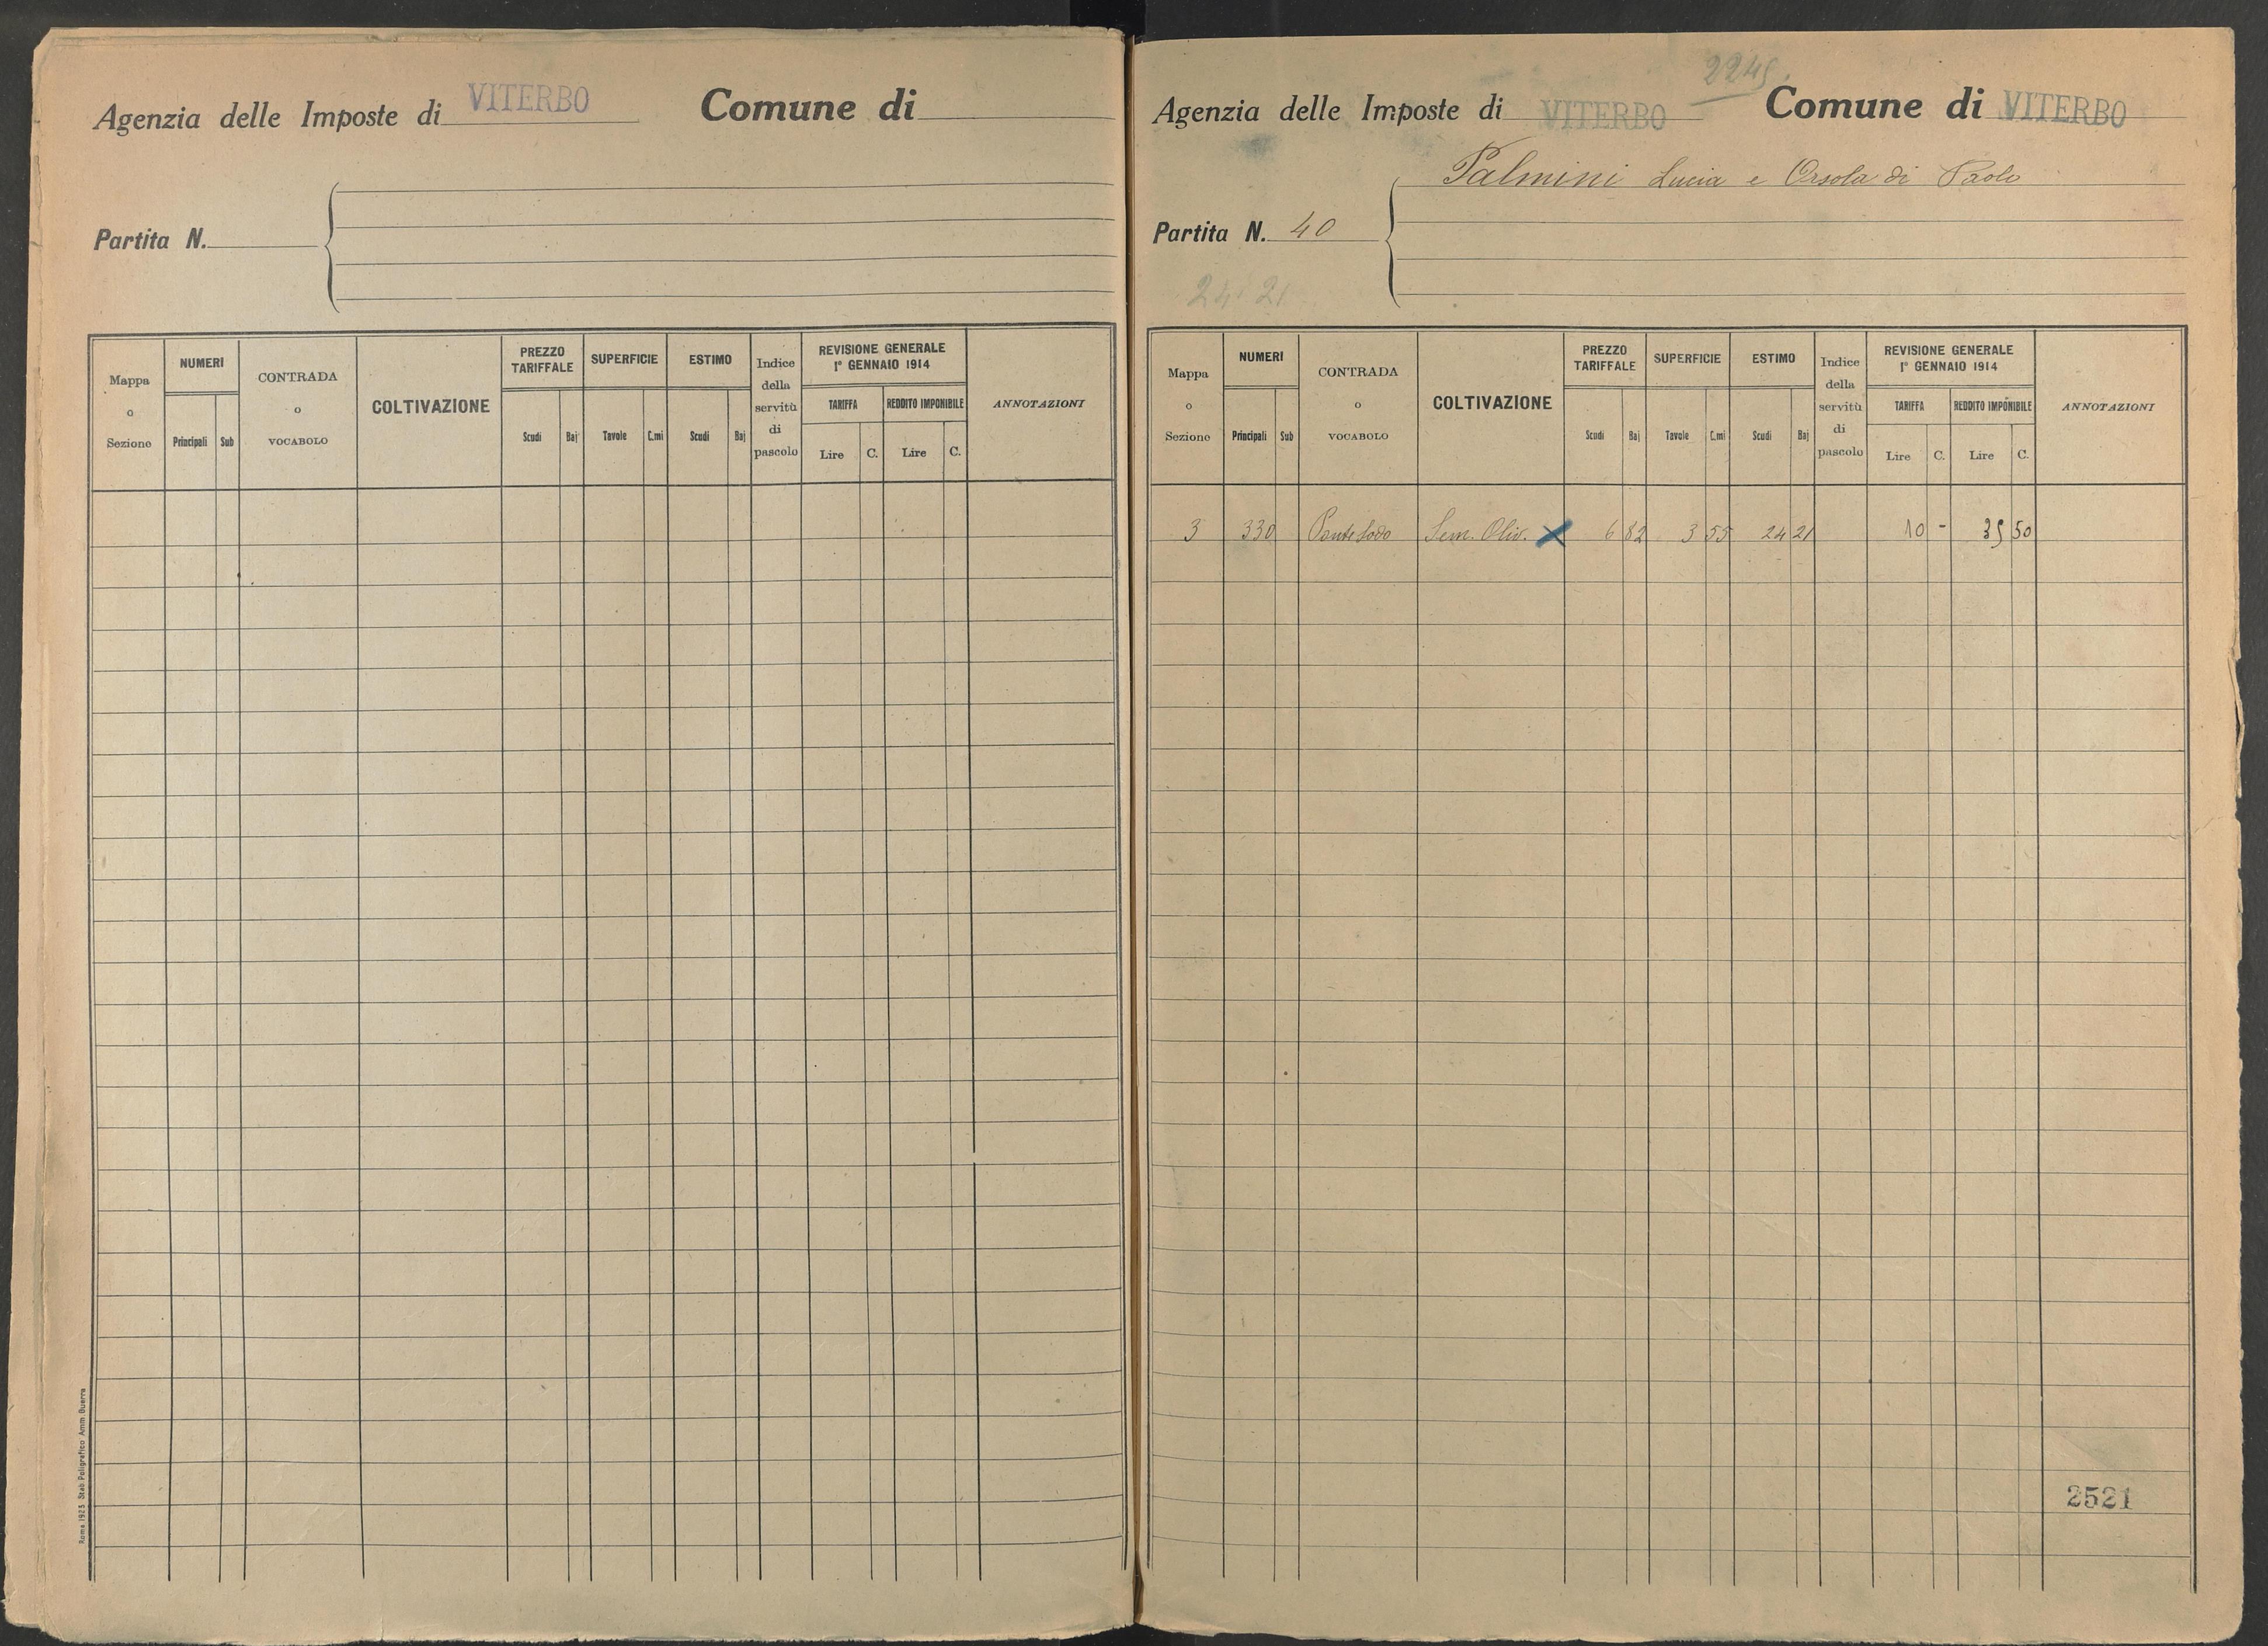 Agenzia delle Imposte di VITERBO Comune di
Partita N.
Mappa o Sezione
NUMERI
Principali Sub
CONTRADA o VOCABOLO
COLTIVAZIONE
PREZZO TARIFFALE
Scudi Baj
SUPERFICIE
Tavole C.mi
ESTIMO
Scudi Baj
Indice della servitù di pascolo
REVISIONE GENERALE
1° GENNAIO 1914
TARIFFA
Lire C.
REDDITO IMPONIBILE
Lire C.
ANNOTAZIONI
Roma 1923 Stab. Poligrafico Amm. Guerra
2245
Agenzia delle Imposte di VITERBO Comune di VITERBO
Palmini Lucia e Orsola di Paolo
Partita N. 40
24 21
Mappa o Sezione
NUMERI
Principali Sub
CONTRADA o VOCABOLO
COLTIVAZIONE
PREZZO TARIFFALE
Scudi Baj
SUPERFICIE
Tavole C.mi
ESTIMO
Scudi Baj
Indice della servitù di pascolo
REVISIONE GENERALE
1° GENNAIO 1914
TARIFFA
Lire C.
REDDITO IMPONIBILE
Lire C.
ANNOTAZIONI
3 330 Pontesodo Sem. Oliv. X 6 82 3 55 24 21 10 - 35 50
2521